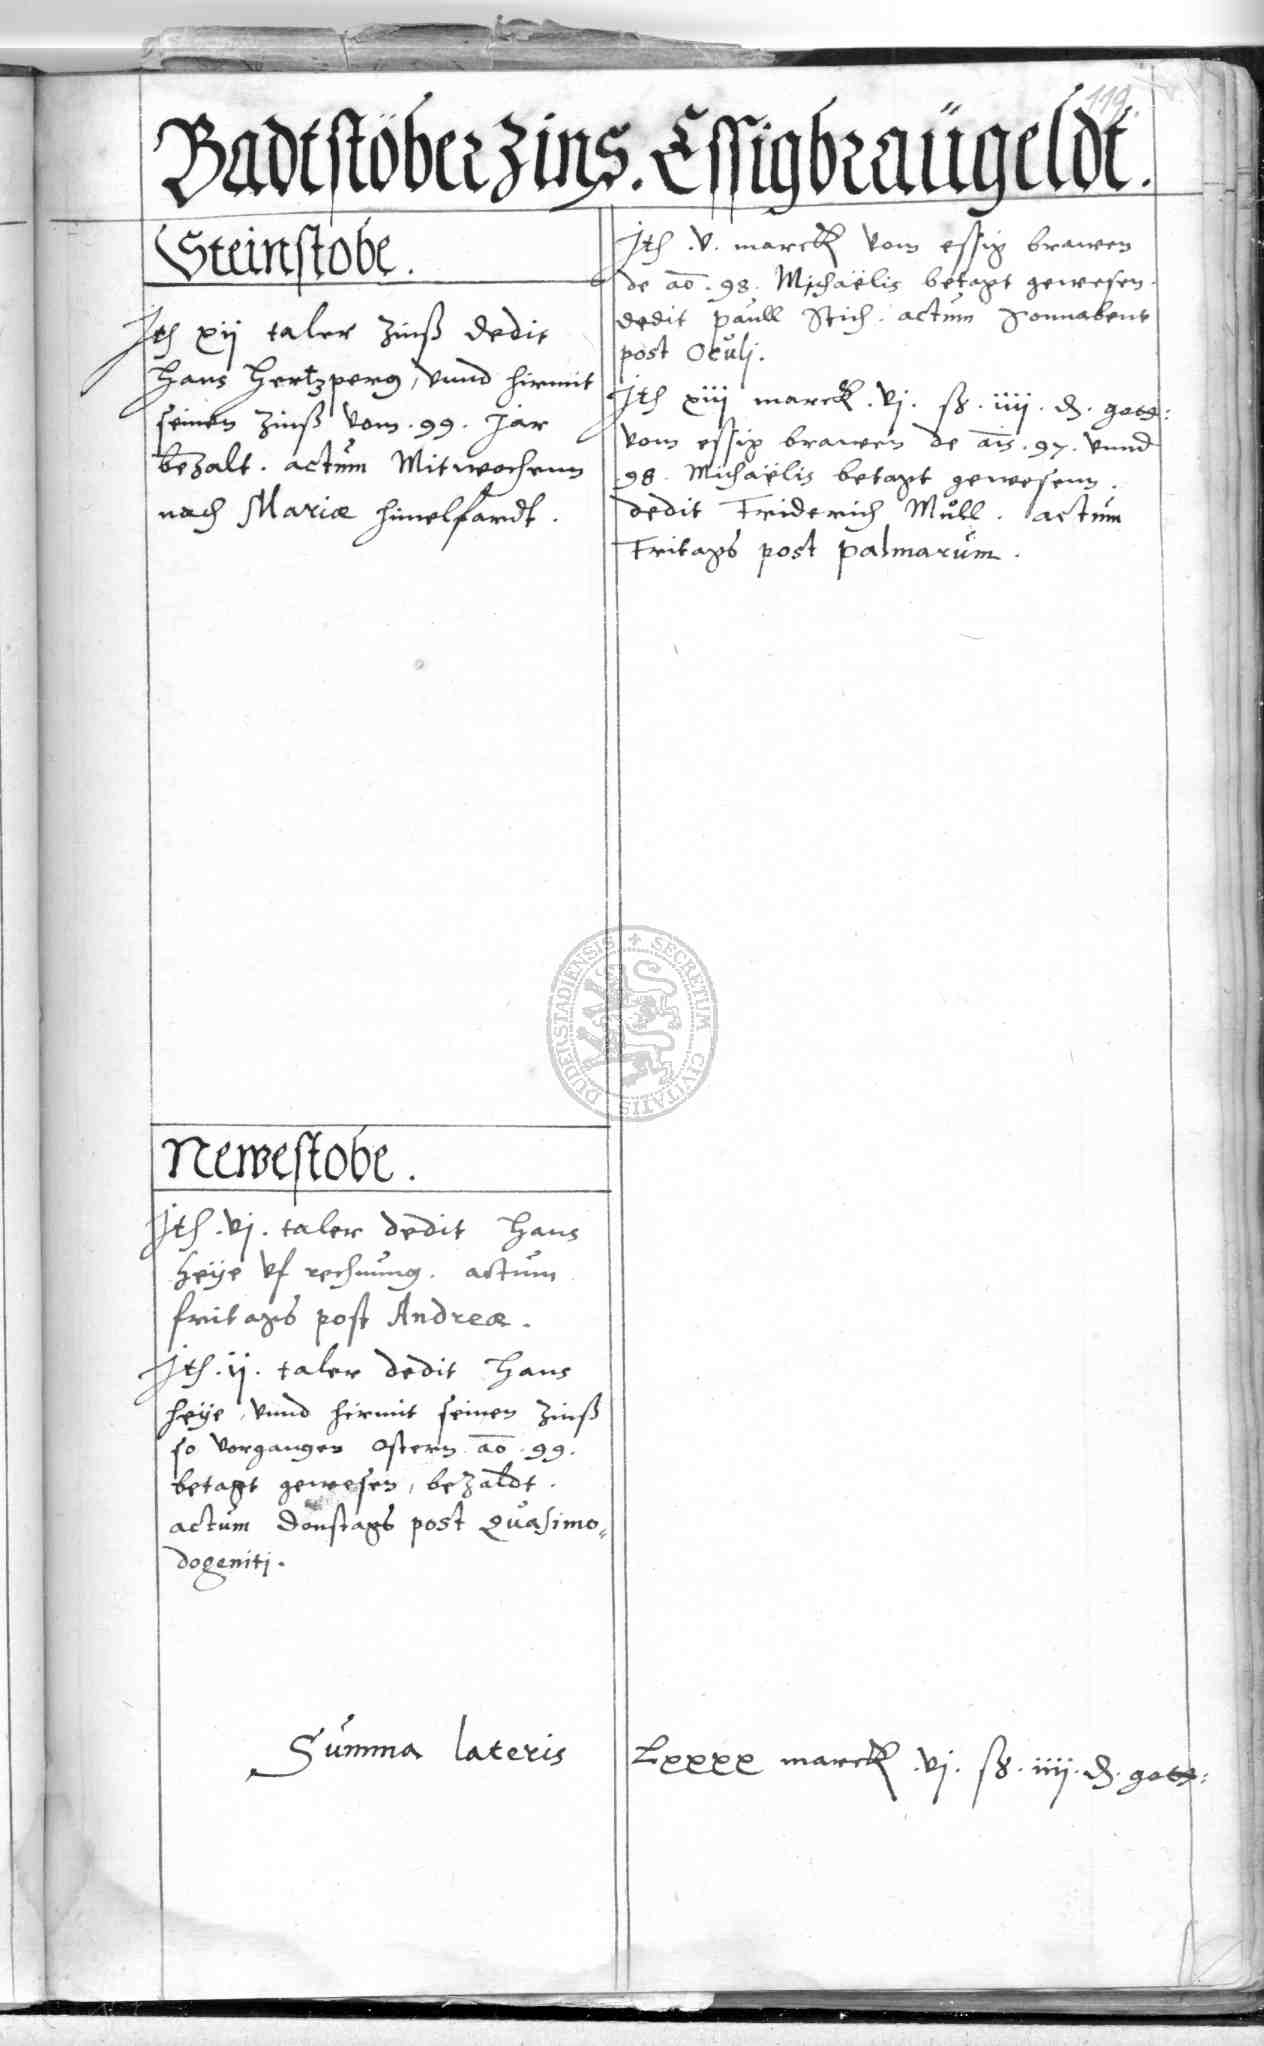 119.
Badtstöberzins. Essigbraügeldt.
Steinstobe.
Jth xij taler zinß dedit
Hans Hertzperg, vnnd hirmit
seinen zinß vom .99. Jar
bezalt. actum Mitwochenn
nach Mariæ himelfardt.
Newestobe.
Jth .vj. taler dedit Hans
Heÿe vf rechnung. actum
fritags post Andreæ.
Jth .ij. taler dedit Hans
heÿe, vnnd hirmit seinen zinß
so vorgangen Ostern ao .99.
betagt gewesen, bezaldt.
actum Donstags post Quasimo„
dogenitj.
Jth .v. marck vom essig brawen
de ao .98. Michaëlis betagt gewesen.
dedit paull Stich. actum Sonnabent
post Oculj.
Jth xiij marck .vj. ß .iiij. d. gots:
vom essig brawen de ais .97. vnnd
98. Michaëlis betagt gewesenn.
dedit Friderich Müll. actum
Fritags post palmarum.
Summa lateris Lxxxx marck .vj. ß .iiij. d. gots:
DUDERSTADIENSIS + SECRETUM CIVITATIS